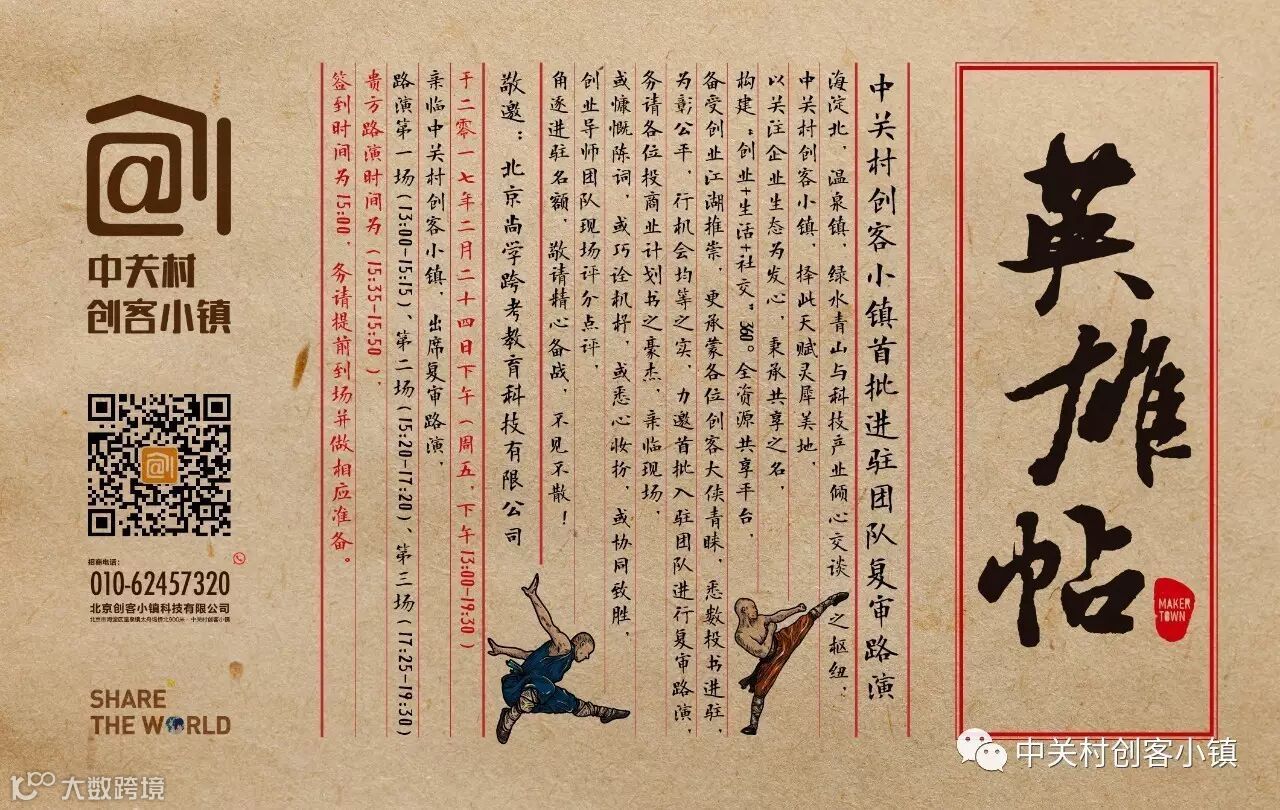 英雄帖
MAKER
TOWN
中关村创客小镇首批进驻团队复审路演
海淀北，温泉镇，绿水青山与科技产业倾心交谈之枢纽，
中关村创客小镇，择此天赋灵犀美地，
以关注企业生态为发心，秉承共享之名，
构建“创业+生活+社交”360°全资源共享平台，
备受创业江湖推崇，更承蒙各位创客大侠青睐，悉数投书进驻，
为彰公平，行机会均等之实，力邀首批入驻团队进行复审路演，
务请各位投商业计划书之豪杰，亲临现场，
或慷慨陈词，或巧诠机杼，或悉心妆扮，或协同致胜，
创业导师团队现场评分点评，
角逐进驻名额，敬请精心备战，不见不散！
敬邀：北京尚学跨考教育科技有限公司
于二零一七年二月二十四日下午（周五，下午13:00-19:30）
亲临中关村创客小镇，出席复审路演，
路演第一场(13:00-15:15)、第二场(15:20-17:20)、第三场(17:25-19:30)
贵方路演时间为(15:35-15:50)，
签到时间为15:00，务请提前到场并做相应准备。
@创
中关村
创客小镇
招商电话：
010-62457320
北京创客小镇科技有限公司
北京市海淀区温泉镇太舟坞桥北900米·中关村创客小镇
SHARE
THE WORLD
中关村创客小镇
大数跨境